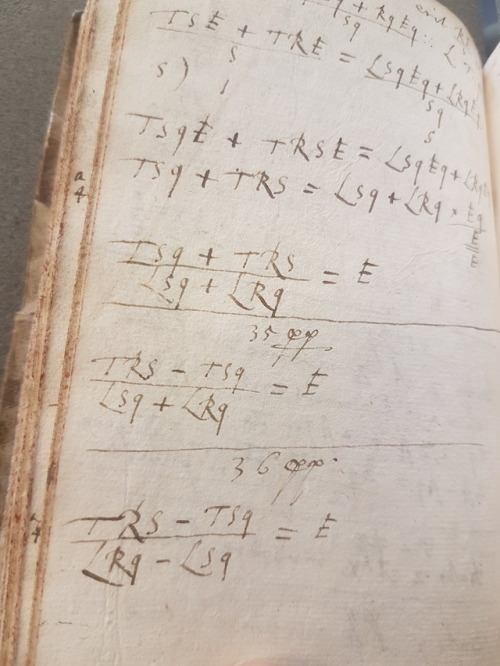 Sq + RqEq :: L
TSE + TRE = LSqEq + LRqEq
S Sq
S) 1 S
TSqE + TRSE = LSqEq + LRq
a TSq + TRS = LSq + LRq × Eq
4 E
E
TSq + TRS = E
LSq + LRq
35 pp
TRS - TSq = E
LSq + LRq
36 pp.
TRS - TSq = E
4
LRq - LSq